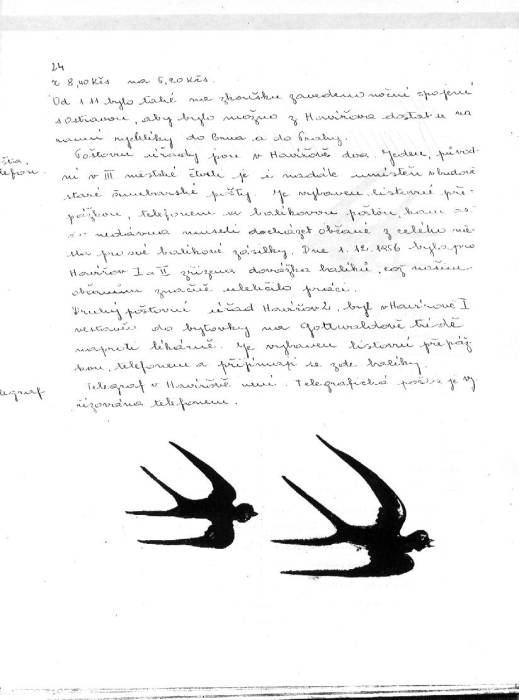 24
z 8,40 Kčs na 5,20 Kčs.
Od 1.11 bylo také na zkoušku zavedeno noční spojení
s Ostravou, aby bylo možno z Havířova dostat se na
ranní rychlíky do Brna a do Prahy.
Poštovní úřady jsou v Havířově dva. Jeden, původ-
ní v III městské čtvrti je i nadále umístěn v budově
staré šumbarské pošty. Je vybaven listovní pře-
pážkou, telefonem a balíkovou poštou, kam
nedávna museli docházet občané z celého mě-
sta pro své balíkové zásilky. Dne 1.12.1956 byla pro
Havířov I a II zřízena dovážka balíků, což našim
občanům značně ulehčilo práci.
Druhý poštovní úřad Havířov 2, byl v Havířově I
vestavěn do bytovky na Gottwaldově třídě
naproti lékárně. Je vybaven listovní přepáž-
kou, telefonem a přijímají se zde balíky.
Telegraf v Havířově není. Telegrafická pošta je vy-
řizována telefonem.